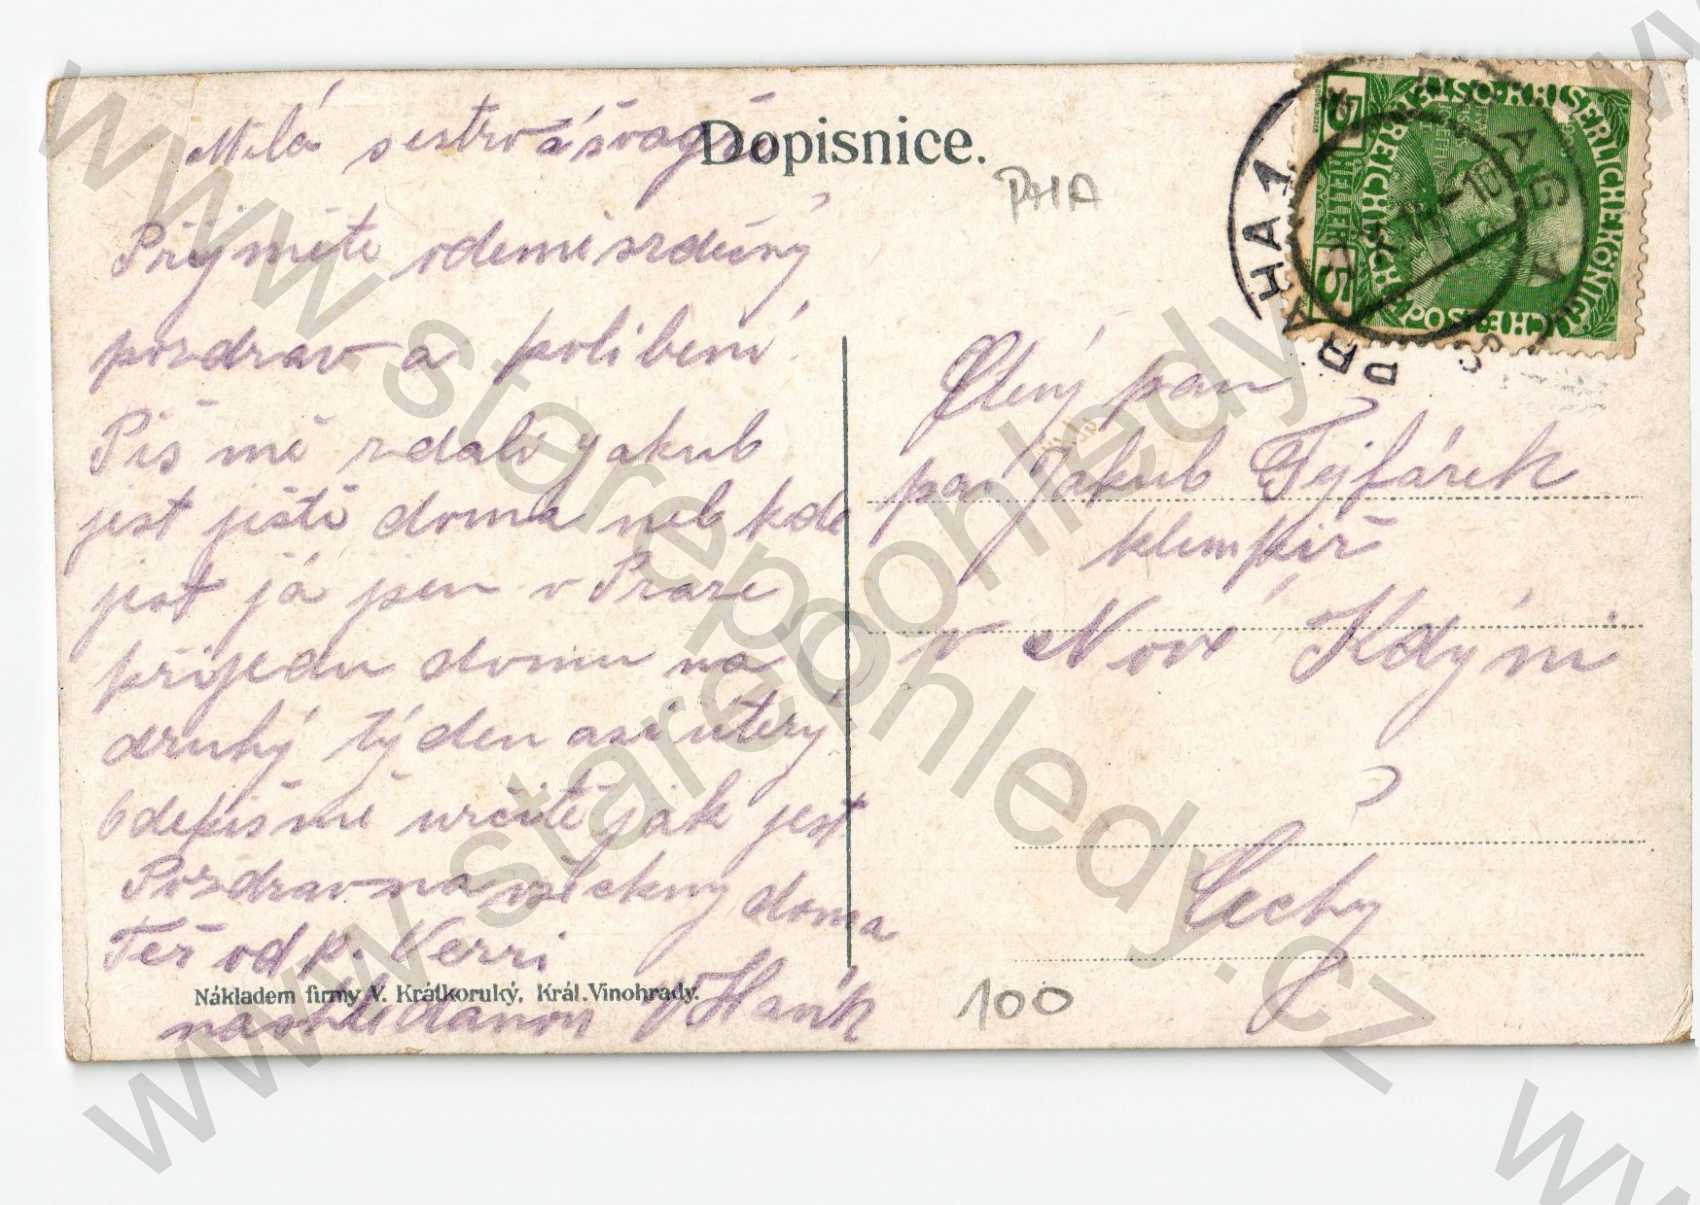 Dopisnice.
PHA
Milá sestro a švagře
Přijměte odemě srdečný
pozdrav a políbení.
Piš mě zdali Jakub
jest ještě doma neb kde
jest já jsem v Praze
přijedu domu na
druhý týden asi úterý
Odepiš mě určitě jak jest
Pozdrav na všeckny doma
Též od p. Verri
na shledanou
Nákladem firmy V. Krátkoruký, Král. Vinohrady.
PRAHA 1
PRAG 1
5 HELLER 5
KAISERLICHE KÖNIGLICHE ÖSTERREICHISCHE POST
Ctěný pan
pan Jakub Tejfárek
klempíř
v Nové Kdýni
Čechy
100
www.starepohledy.cz
www.starepohledy.cz